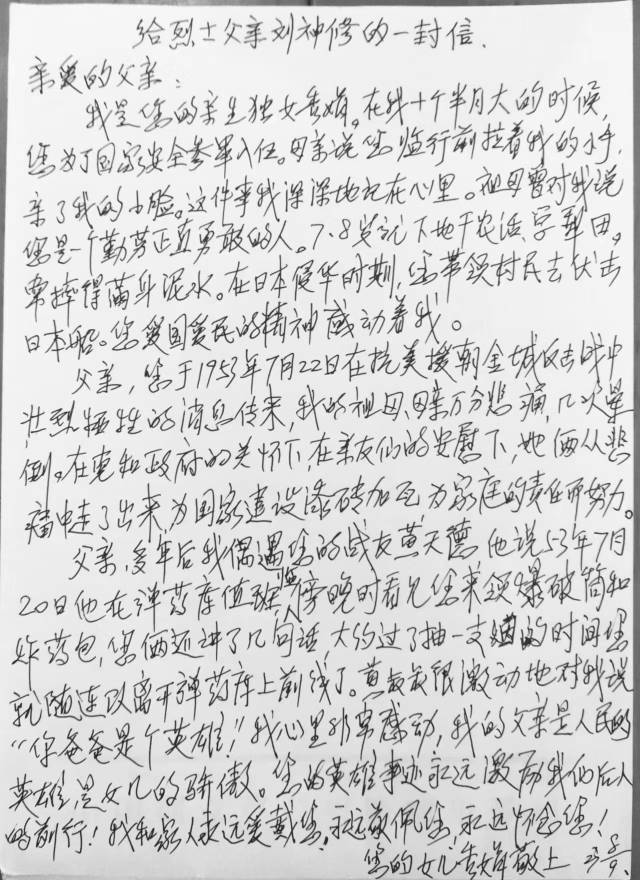 给烈士父亲刘神修的一封信.
亲爱的父亲：
我是您的亲生独女秀娟。在我十个半月大的时候，
您为了国家安全参军入伍。母亲说您临行前拉着我的小手，
亲了我的小脸。这件事我深深地记在心里。祖母曾对我说
您是一个勤劳正直勇敢的人。7.8岁就下地干农活、学犁田，
常摔得满身泥水。在日本侵华时期，您带领村民去伏击
日本船。您爱国爱民的精神感动着我。
父亲，您于1953年7月22日在抗美援朝金城反击战中
壮烈牺牲的消息传来，我的祖母、母亲万分悲痛，几次晕
倒。在党和政府的关怀下，在亲友们的安慰下，她俩从悲
痛中走了出来，为国家建设添砖加瓦为家庭的责任而努力。
父亲，多年后我偶遇您的战友黄天德，他说53年7月
20日他在弹药库值班，傍晚时看见您来领爆破筒和
炸药包，您俩还讲了几句话，大约过了抽一支烟的时间您
就随连队离开弹药库上前线了。黄叔叔很激动地对我说
“你爸爸是个英雄！”我心里非常感动，我的父亲是人民的
英雄，是女儿的骄傲。您的英雄事迹永远激励我们后人
的前行！我和家人永远爱戴您，永远敬佩您，永远怀念您！
您的女儿秀娟敬上 23 8/9.